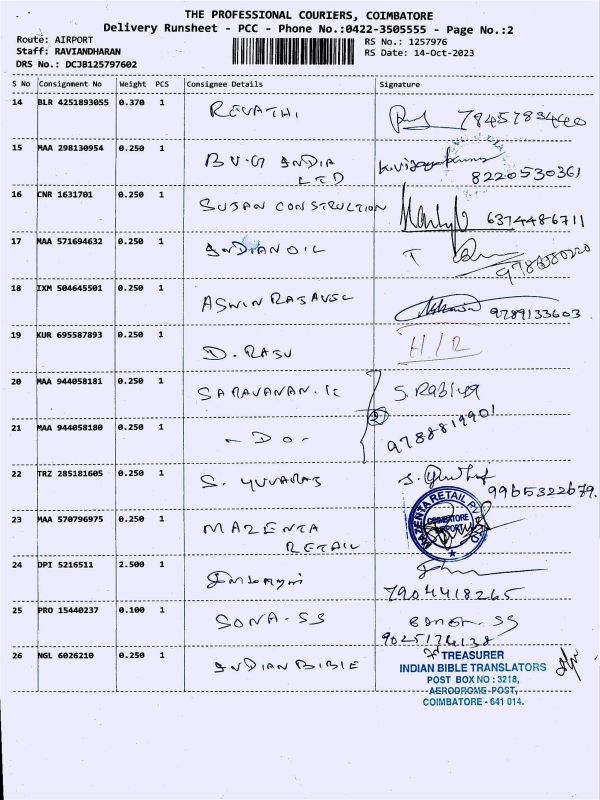 THE PROFESSIONAL COURIERS, COIMBATORE
Delivery Runsheet - PCC - Phone No.:0422-3505555 - Page No.:2
Route: AIRPORT
Staff: RAVIANDHARAN
DRS No.: DCJB125797602
RS No.: 1257976
RS Date: 14-Oct-2023
S No Consignment No Weight PCS Consignee Details Signature
14 BLR 4251893055 0.370 1 REVATHI
15 MAA 298130954 0.250 1 BVG INDIA
LTD 8220530361
16 CNR 1631701 0.250 1 SUJAN CONSTRUCTION 6374486711
17 MAA 571694632 0.250 1 INDIAN OIL
18 IXM 504645501 0.250 1 ASWIN 9789133603
19 KUR 695587893 0.250 1 D. RAJU H/R
20 MAA 944058181 0.250 1 SARAVANAN. K S. Rabiya
2
21 MAA 944058180 0.250 1 - DO - 9788819901
22 TRZ 285181605 0.250 1 S. YUVARAJ
9965322679.
23 MAA 570796975 0.250 1 MAZENTA
RETAIL
MAZENTA RETAIL PVT LTD
COIMBATORE
AIRPORT
24 DPI 5216511 2.500 1
7904418265
25 PRO 15440237 0.100 1 SONA-SS
26 NGL 6026210 0.250 1 INDIAN BIBLE
TREASURER
INDIAN BIBLE TRANSLATORS
POST BOX NO : 3218,
AERODROME POST,
COIMBATORE - 641 014.